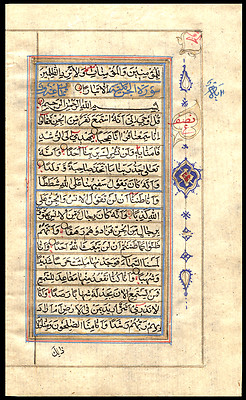 للمؤمنين والمؤمنات ولا تزد الظلمين
سورة الجن الا تبارا
بسم الله الرحمن الرحيم
قل اوحي الي انه استمع نفر من الجن فقالوا
انا سمعنا قرانا عجبا يهدي الى الرشد
فامنا به ولن نشرك بربنا احدا وانه
تعالى جد ربنا ما اتخذ صاحبة ولا ولدا
وانه كان يقول سفيهنا على الله شططا
وانا ظننا ان لن تقول الانس والجن على
الله كذبا وانه كان رجال من الانس يعوذون
برجال من الجن فزادوهم رهقا وانهم
ظنوا كما ظننتم ان لن يبعث الله احدا وانا
لمسنا السماء فوجدناها ملئت حرسا شديدا
وشهبا وانا كنا نقعد منها مقاعد للسمع
فمن يستمع الان يجد له شهابا رصدا وانا
لا ندري اشر اريد بمن في الارض ام اراد
بهم ربهم رشدا وانا منا الصلحون ومنا
نصف